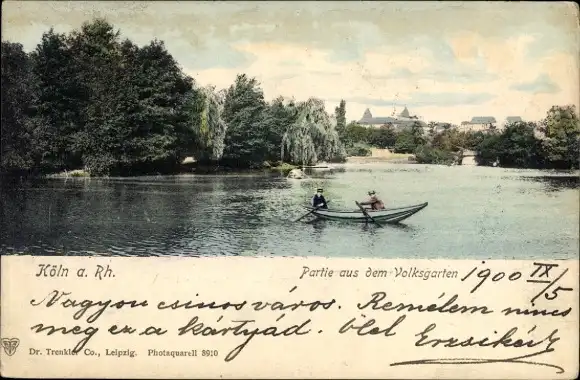 Köln a. Rh.
Partie aus dem Volksgarten
1900 IX/5
Nagyon csinos város. Remélem nincs
meg ez a kártyád. Ölel Erzsikéd
Dr. Trenkler Co., Leipzig. Photaquarell 8910